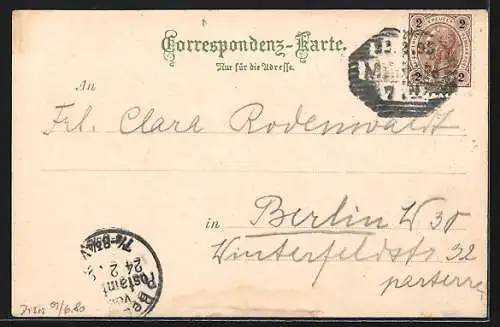 Correspondenz-Karte.
Nur für die Adresse.
2 2
2 2
An
Frl. Clara Rodenwaldt
in Berlin W 30
Winterfeldstr 32
parterre
Postamt
24 2